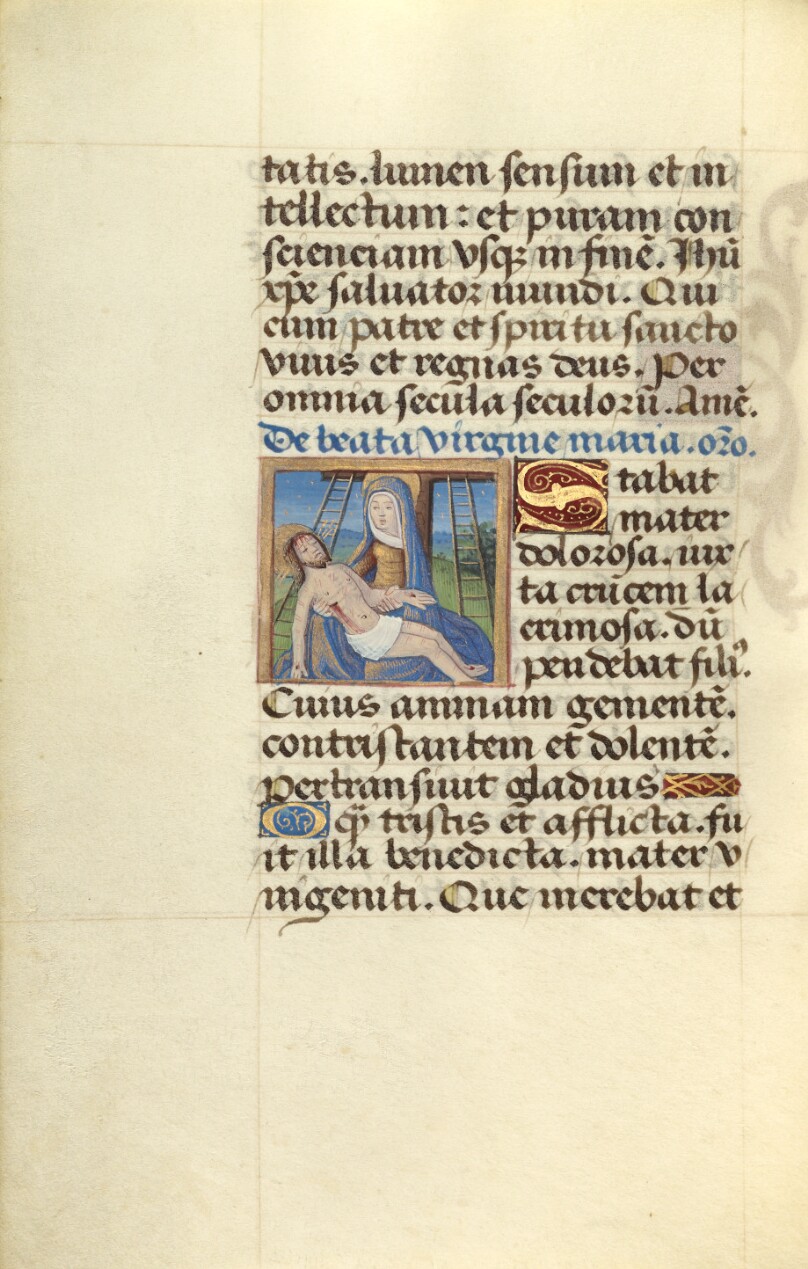 tatis. lumen sensum et in
tellectum : et puram con
scienciam vsqꝫ in finē. Ihū
xp̄e saluator mundi. Qui
cum patre et spiritu sancto
viuis et regnas deus. Per
omnia secūla seculorū. Amē.
De beata virgine maria. or̄o.
Stabat
mater
dolorosa. iux
ta crucem la
crimosa. dū
pendebat filiꝰ.
Cuius animam gementē.
contristantem et dolentē.
pertransiuit gladius
O q̄ tristis et afflicta. fu
it illa benedicta. mater v
nigeniti. Que merebat et